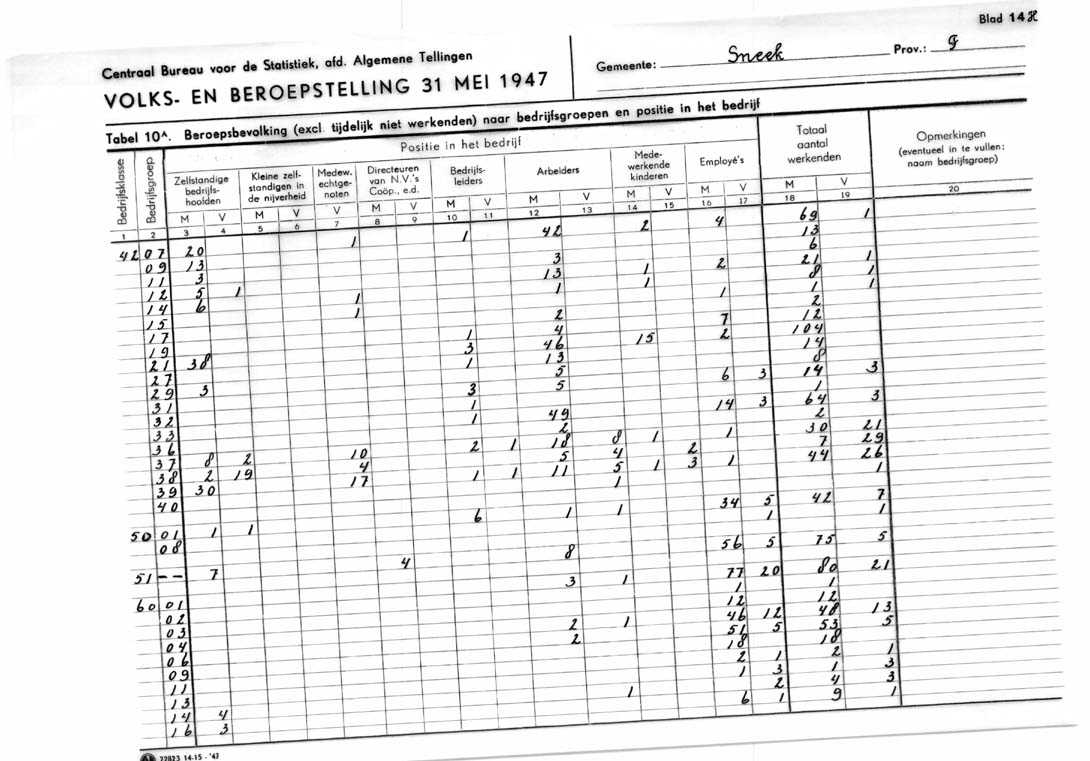 Blad 14 H
Centraal Bureau voor de Statistiek, afd. Algemene Tellingen
Gemeente: Sneek Prov.:
VOLKS- EN BEROEPSTELLING 31 MEI 1947
Tabel 10ᴬ. Beroepsbevolking (excl. tijdelijk niet werkenden) naar bedrijfsgroepen en positie in het bedrijf
Bedrijfsklasse
Bedrijfsgroep
Positie in het bedrijf
Zelfstandige bedrijfs-hoofden
Kleine zelf-standigen in de nijverheid
Medew. echtge-noten
Directeuren van N.V.'s Coöp., e.d.
Bedrijfs-leiders
Arbeiders
Mede-werkende kinderen
Employé's
Totaal aantal werkenden
Opmerkingen (eventueel in te vullen: naam bedrijfsgroep)
M V M V V M V M V M V M V M V M V
1 2 3 4 5 6 7 8 9 10 11 12 13 14 15 16 17 18 19 20
42 07 20 1 1 42 2 4 69 1
09 13 13
11 3 3 6
12 5 1 13 1 2 21 1
14 6 1 1 1 8 1
15 1 1 1 1
17 2 2
19 1 4 7 12
21 38 3 46 15 2 104
27 1 13 14
29 3 5 8
31 3 5 6 3 14 3
32 1 1
33 1 49 14 3 64 3
36 2 2
37 8 2 10 2 1 18 8 1 1 30 21
38 2 19 4 5 4 2 7 29
39 30 17 1 1 11 5 1 3 1 44 26
40 1 1
50 01 1 1 6 1 1 34 5 42 7
08 1 1
51 - - 7 4 8 56 5 75 5
60 01 3 1 77 20 80 21
02 1 1
03 12 12
04 2 1 46 12 48 13
06 2 51 5 53 5
09 18 18
11 2 1 2 1
13 1 3 1 3
14 4 2 4 3
16 3 1 6 1 9 1
22823 14-15 - '47